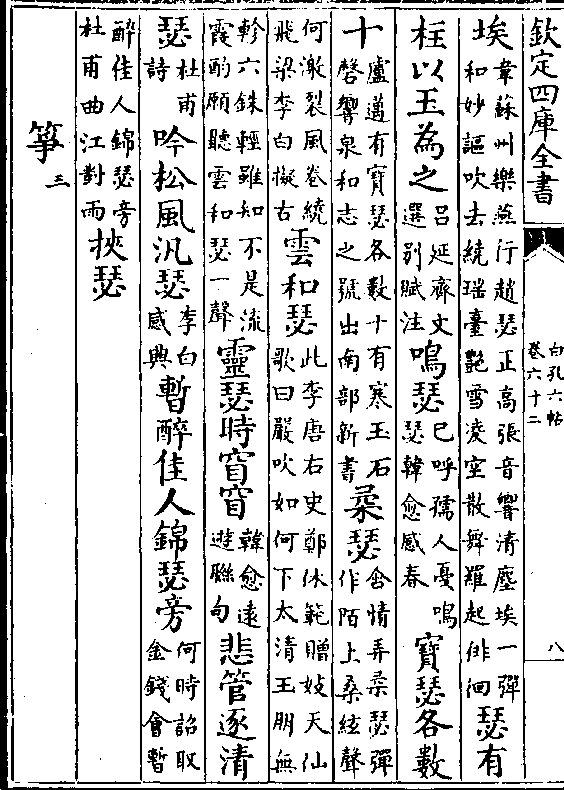 欽定四庫全書
白孔六帖
卷六十二
八
埃韋蘇州樂燕行趙瑟正高張音響清塵埃一彈和妙謳吹去繞瑤臺艷雪凌空散舞羅起徘徊瑟有
柱以玉為之吕延齊文選别賦注鳴瑟已呼孺人戞鳴瑟韓愈感春寶瑟各數
十盧邁有寶瑟各數十有寒玉石磬響泉和志之號出南部新書柔瑟含情弄柔瑟彈作陌上桑絃聲
何激裂風卷繞飛梁李白擬古雲和瑟此李唐右史鄭休範贈妓天仙歌曰嚴吹如何下太清玉朋無
軫六銖輕雖知不是流霞酌願聽雲和瑟一聲靈瑟時窅窅韓愈遠遊聯句悲管逐清
瑟杜甫詩吟松風汎瑟李白感興暫醉佳人錦瑟旁何時詔取金錢會暫
醉佳人錦瑟旁杜甫曲江對雨挾瑟
箏三